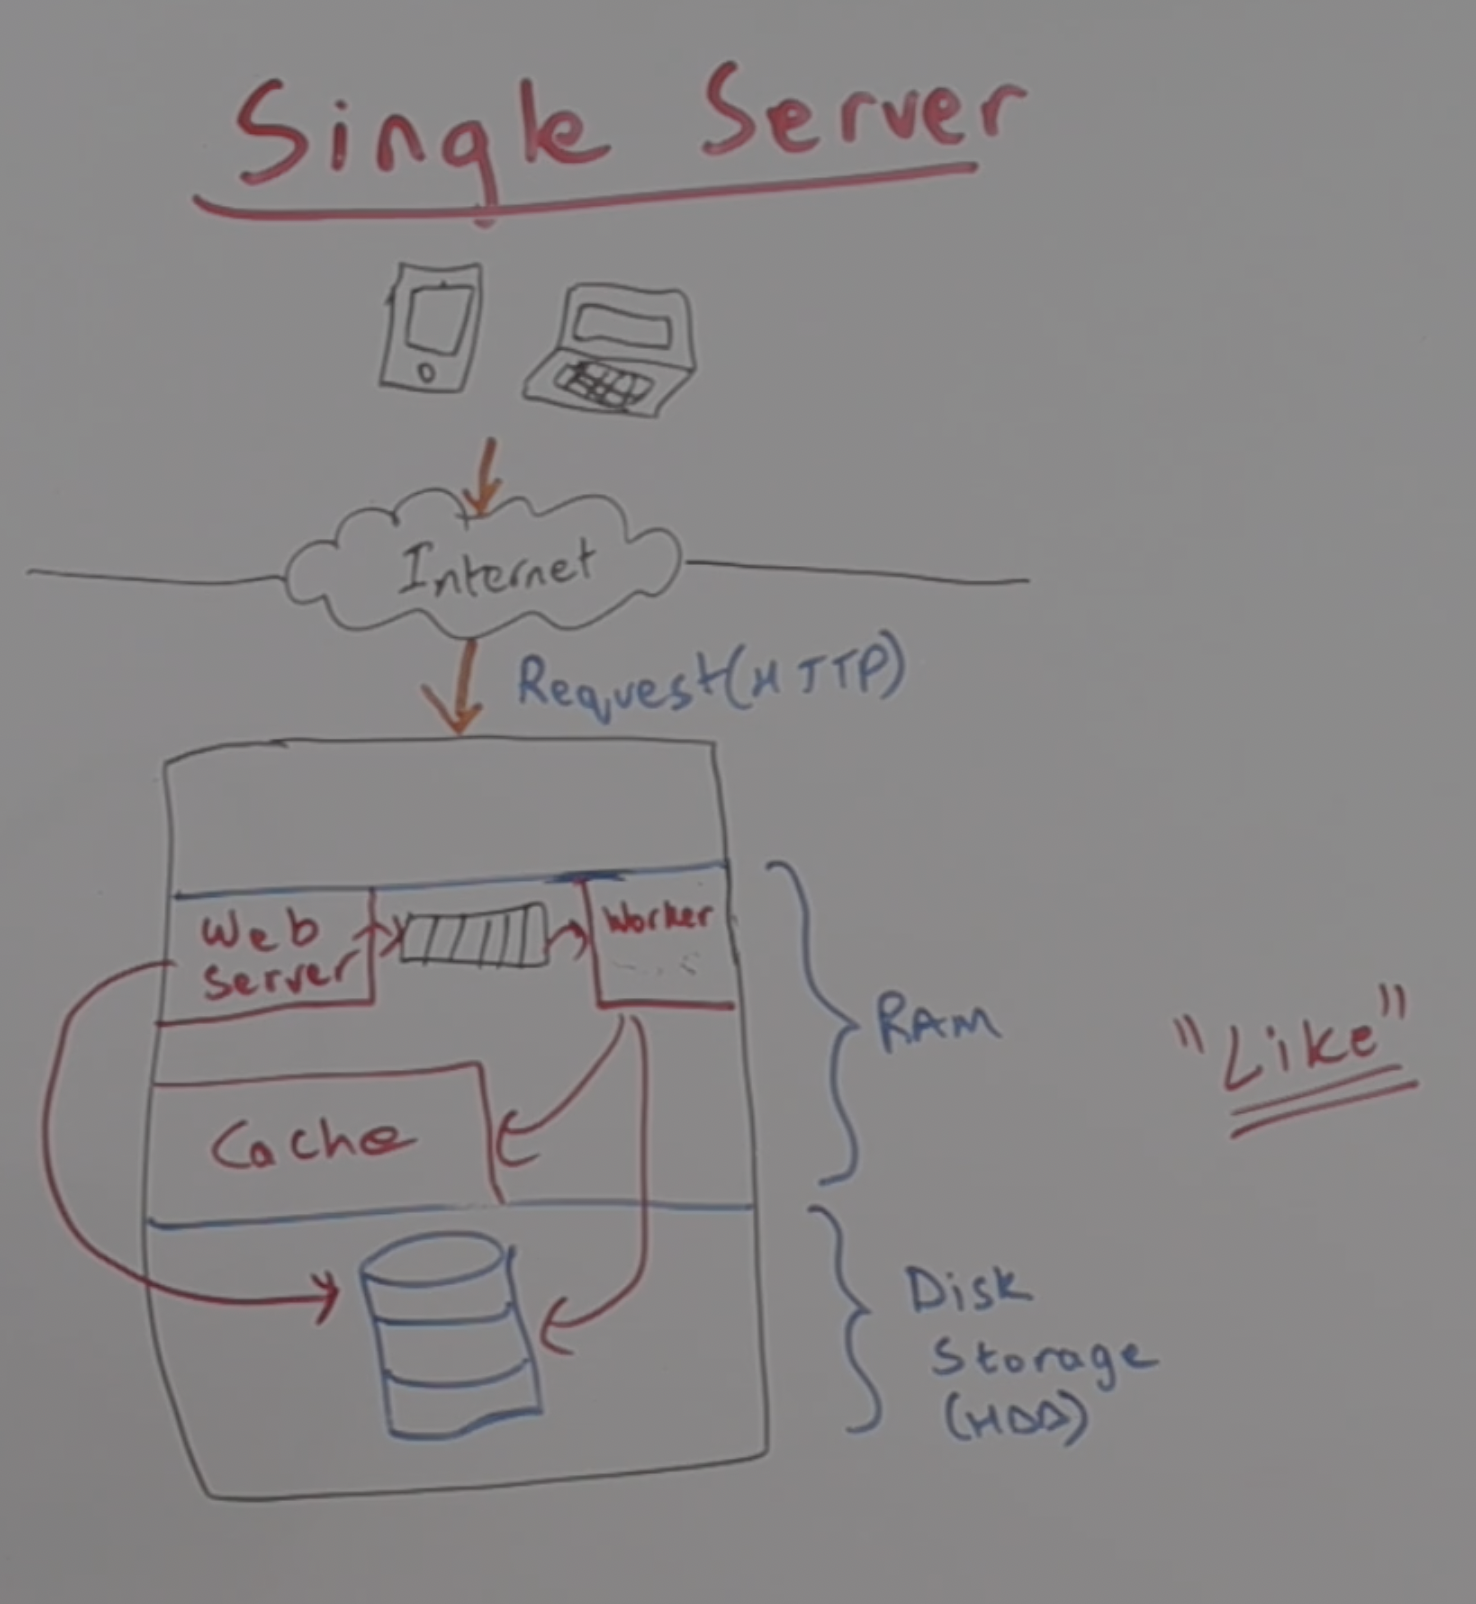 Single Server
Internet
Request(HTTP)
Web
Server
Worker
RAM
"Like"
Cache
Disk
Storage
(HDD)